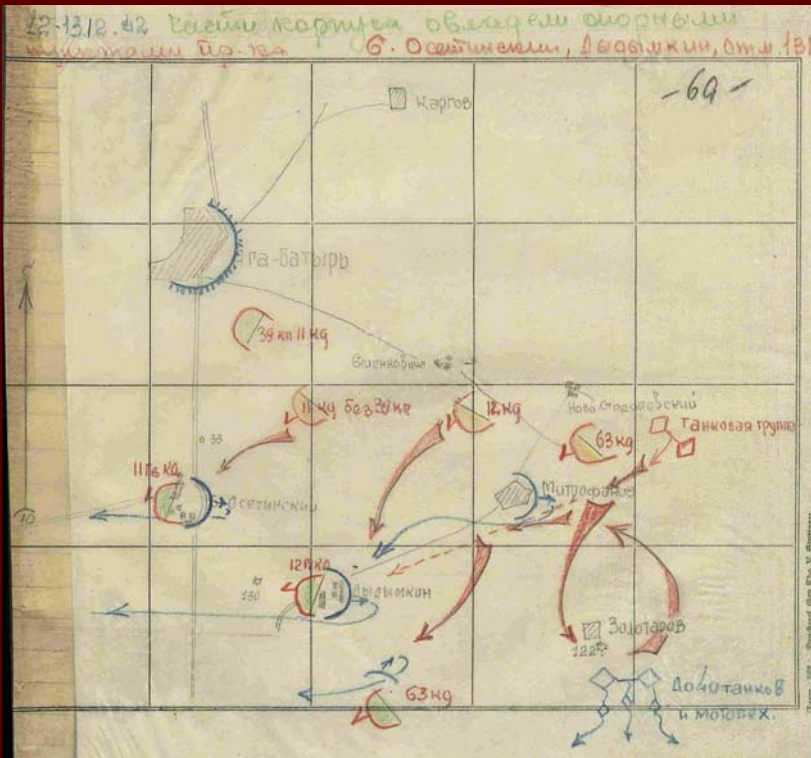 12-13.12.42 Части корпуса овладели опорными
пунктами пр-ка б. Осетинский, Дыдымкин, отм. 13
- 6а -
Каргов
Ага-Батырь
39 кп 11 кд
11 кд без 39 кп
12 кд
Ново-Стодоровский
63 кд
Танковая группа
° 33
11 Гв кд
Осетинский
Митрофанов
10
12 Гв кд
130
Дыдымкин
Золотарев
122
63 кд
До 40 танков
и мотопех.